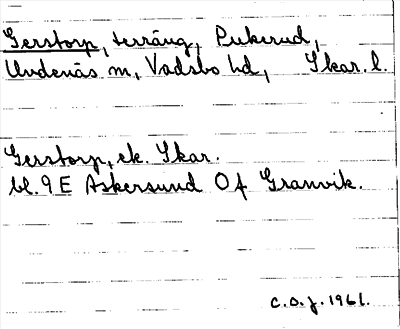 Gerstorp, terräng, Pukerud,
Undenäs sn, Vadsbo hd, Skar. l.
Gerstorp, ek. Skar.
bl. 9 E Askersund Of Granvik.
C.O.J. 1961.